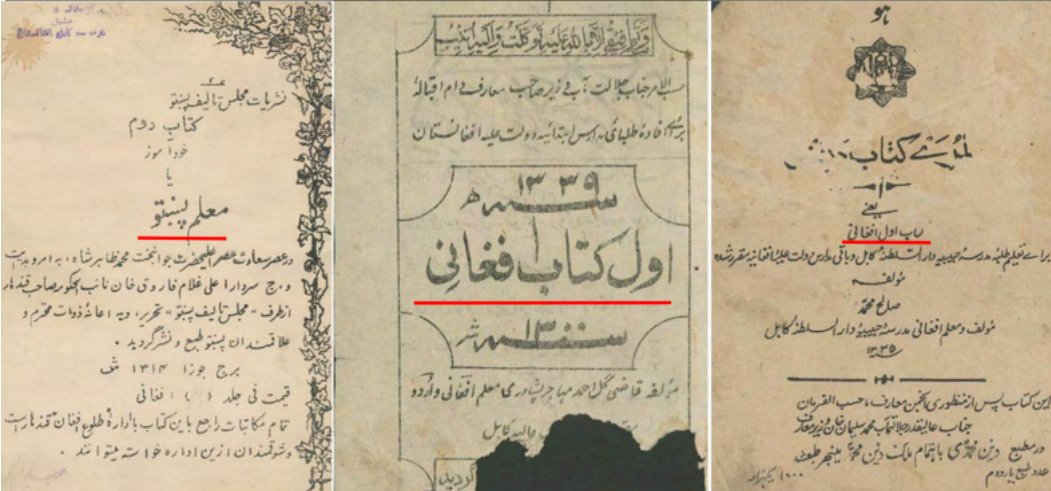 نشریات مجلس تالیف پښتو
کتاب دوم
خود آموز
یا
معلم پښتو
در عصر سعادت حصر اعلیحضرت جوانبخت محمد ظاهر شاه، به امر و هدایت
و، ج سردار اعلی غلام فاروق خان نائب الحکومه صاحب قندهار
از طرف «مجلس تالیف پښتو» تحریر، و به اعانهٔ ذوات محترم و
علاقمندان پښتو طبع و نشر گردید ۰
برج جوزا ۱۳۱۴ ش
قیمت فی جلد افغانی
تمام مکاتبات راجع باین کتاب بادارهٔ طلوع افغان قندهار است
و شوقمندان ازین اداره خواسته میتوانند ۰
وما توفیقی الا بالله علیه توکلت والیه انیب
حسب الامر جناب جلالت مآب وزیر صاحب معارف دام اقباله
برای افادهٔ طلبای مدارس ابتدائیه دولت علیه افغانستان
۱۳۳۹
سنه ھ
اول کتاب افغانی
سنه ۱۳۰۰ ش
مؤلفه قاضی گل احمد مهاجر پشاوری معلم افغانی و اردو
عالیه کابل
گردید
هو
لمړے کتاب د پښتو
یعنے
کتاب اول افغانی
براے تعلیم طلبه مدرسهٔ حبیبیه دار السلطنهٔ کابل و باقی مدارس دولت علیهٔ افغانیه مقرر شده
مؤلفه
صالح محمد
مؤلف و معلم افغانی مدرسهٔ حبیبیهٔ دار السلطنهٔ کابل
۱۳۳۵
این کتاب پس از منظوری انجمن معارف، حسب الفرمان
جناب عالیقدر جلالتمآب محمد سلیمان خان وزیر معارف
در مطبع دین محمدی باهتمام ملک دین محمد منیجر طبع شد
عدد طبع بار دوم ۱۰۰۰ یکهزار